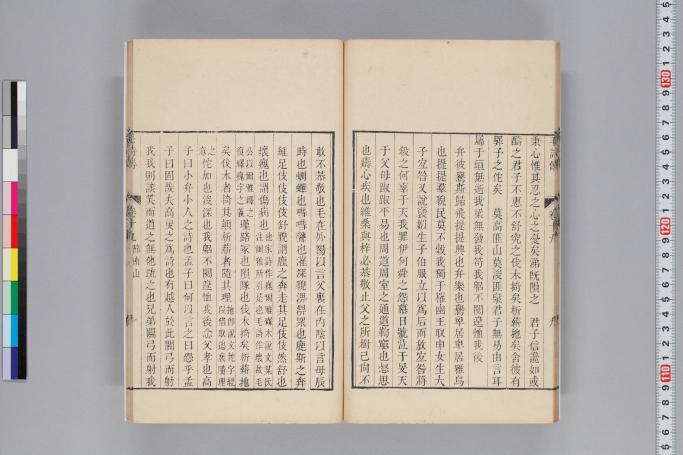 秉心惟其忍之心之憂矣涕旣隕之　君子信讒如或
醻之君子不惠不舒究之伐木掎矣析薪扡矣舍彼有
罪予之佗矣　莫高匪山莫浚匪泉君子無易由言耳
屬于垣無逝我梁無發我笱我躬不閱遑恤我後
弁彼鸒斯歸飛提提興也弁樂也鸒卑居卑居雅烏
也提提羣貌民莫不穀我獨于罹幽王取申女生大
子宜咎又說褒姒生子伯服立以爲后而放宜咎將
殺之何辜于天我罪伊何舜之怨慕日號泣于旻天
于父母踧踧平易也周道周室之通道鞫窮也惄思
也擣心疾也維桑與梓必恭敬止父之所樹己尙不
敢不恭敬也毛在外陽以言父裏在內陰以言母辰
時也蜩蟬也嘒嘒聲也漼深貌淠淠眾也鹿斯之奔
維足伎伎伎伎舒貌謂鹿之奔走其足伎伎然舒也
壞瘣也謂傷病也
瘣釋壞字之義墐路冢也隕隊也伐木掎其
矣伐木者掎其顚析薪者隨其理
之佗加也浚深也我躬不閱遑恤我後念父孝也高
子曰小弁小人之詩也孟子曰何以言之曰怨乎孟
子曰固哉夫高叟之爲詩也有越人於此關弓而射
我我則談笑而道之無他疏之也兄弟關弓而射我